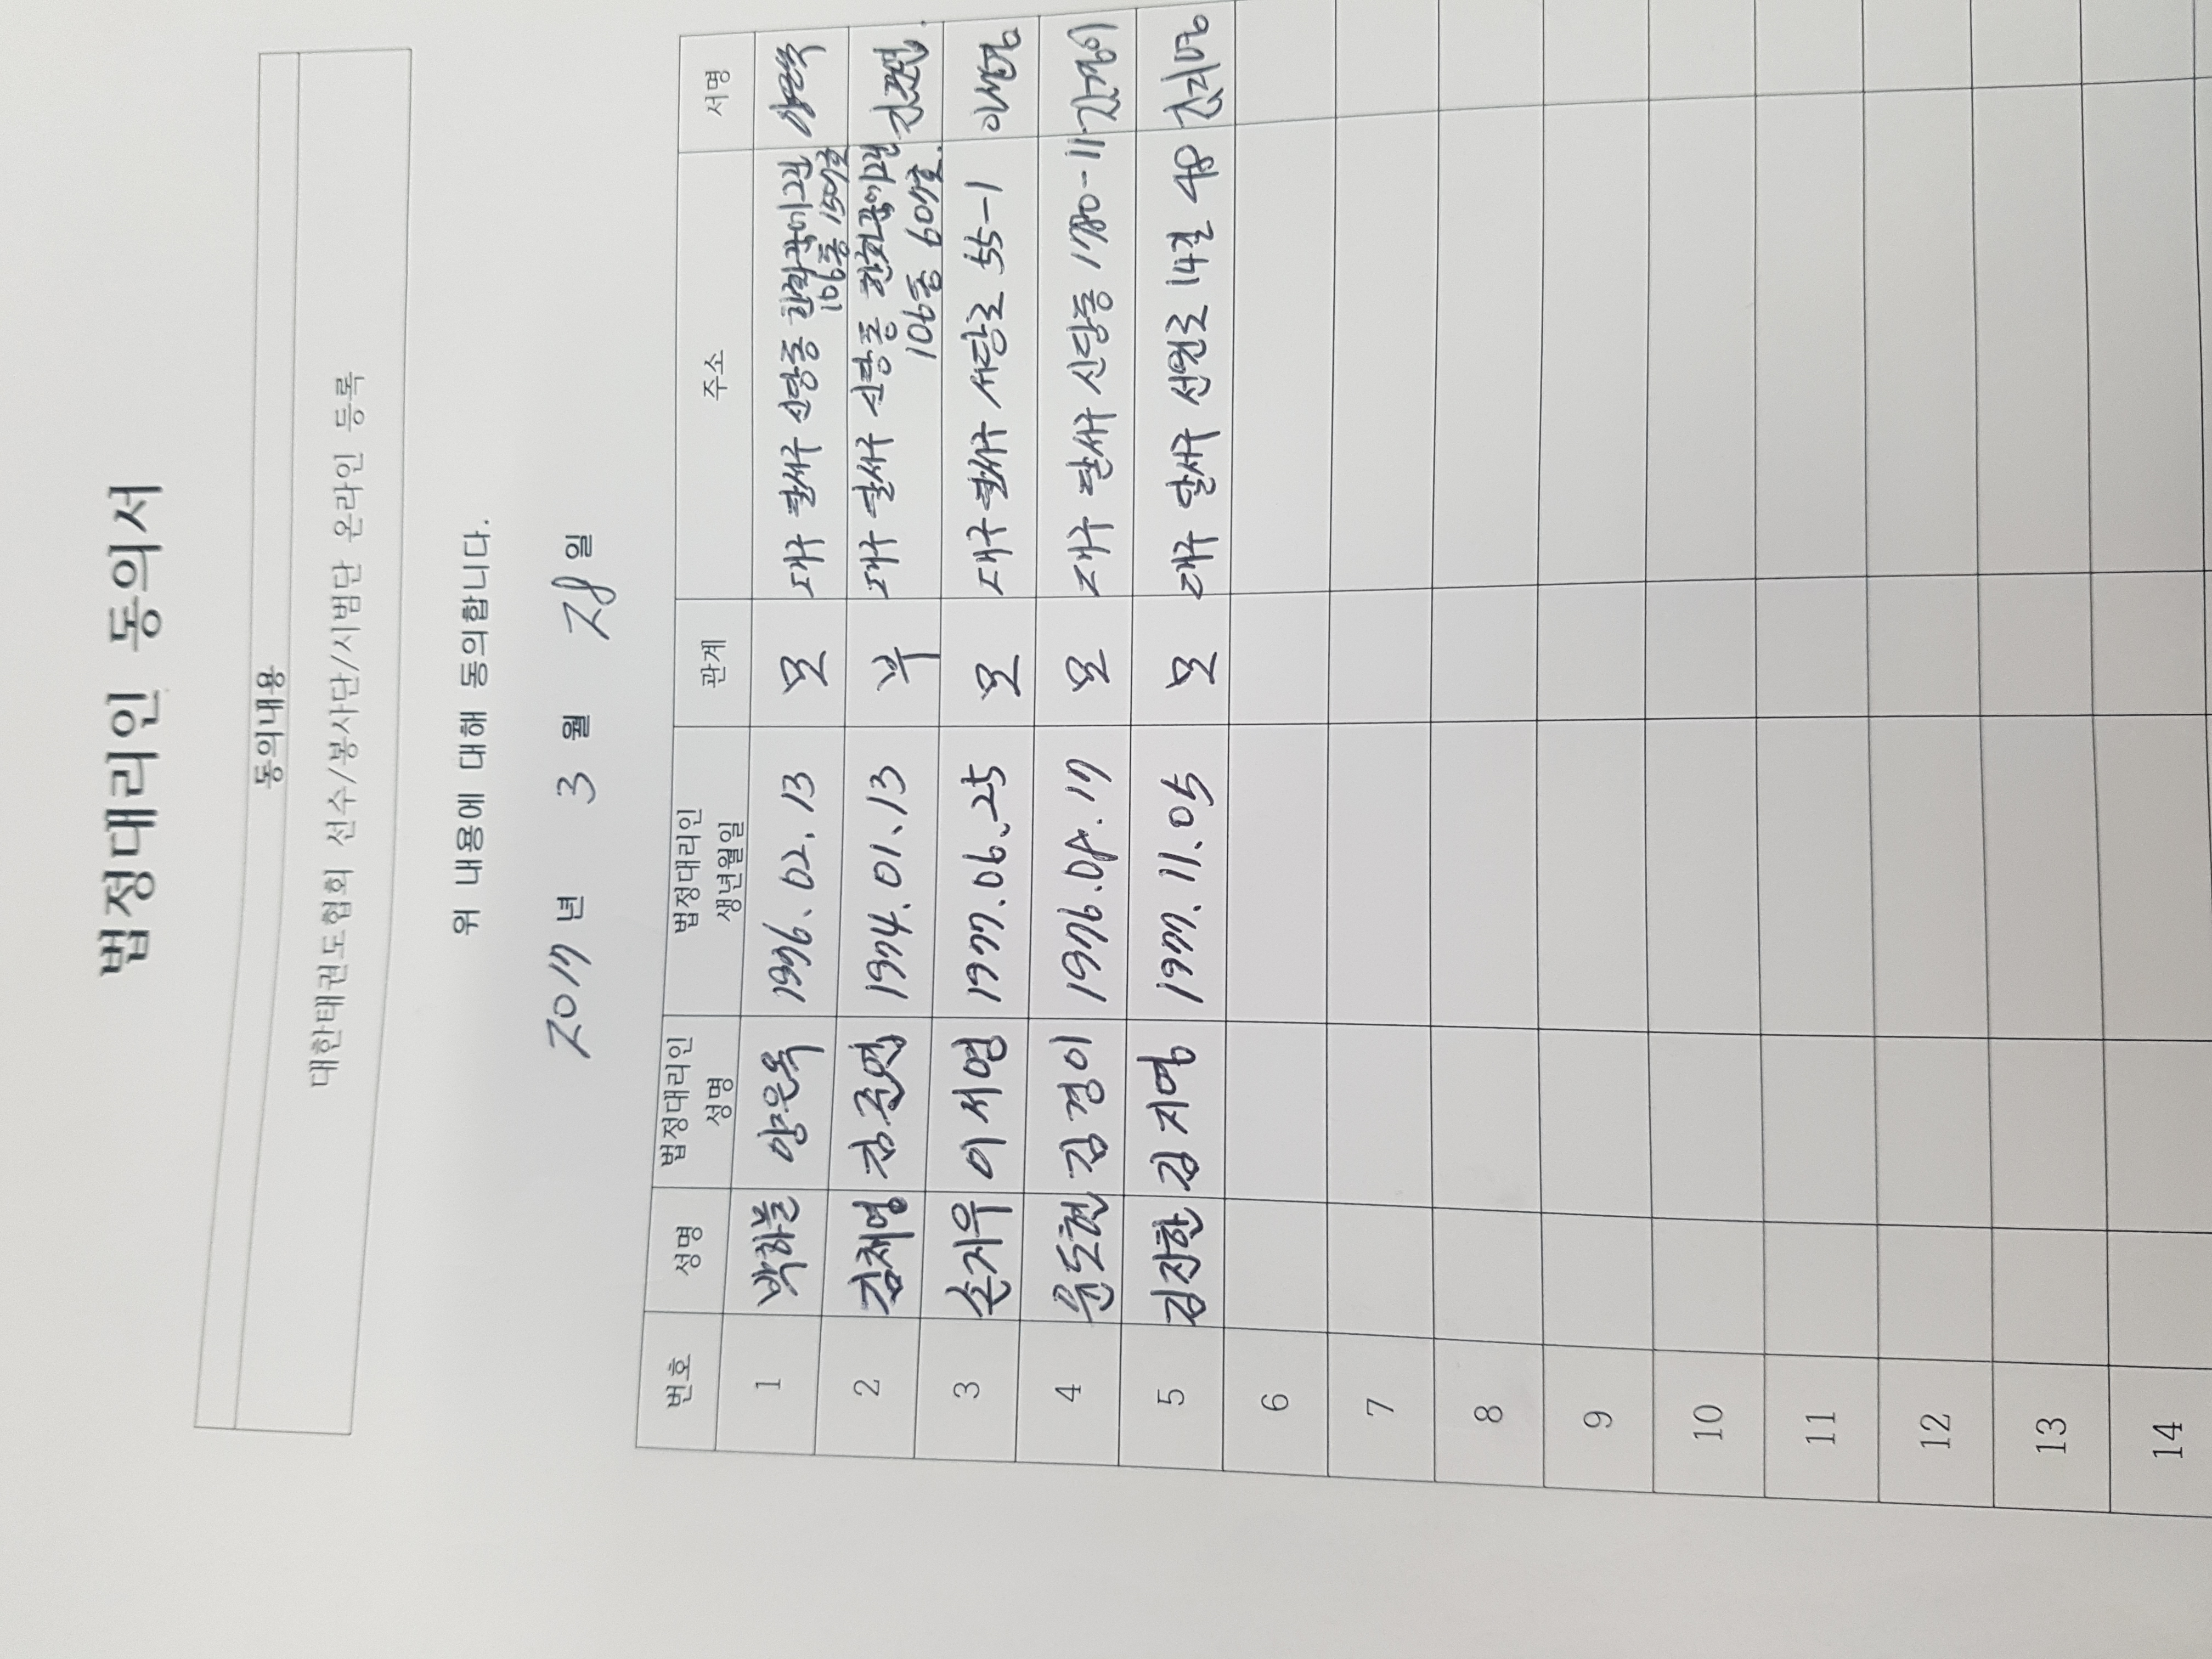 법정대리인 동의서
동의내용
대한태권도협회 선수/봉사단/시범단 온라인 등록
위 내용에 대해 동의합니다.
2017 년 3 월 28 일
번호 성명 법정대리인 성명 법정대리인 생년월일 관계 주소 서명
1 박하늘 양은옥 1976. 02. 13 모 대구 달서구 신당동 한화꿈에그린 106동 1507호
2 김채영 1974. 01. 13 부 대구 달서구 신당동 한화꿈에그린 106동 607호.
3 손지우 이세영 1977. 06. 25 모 대구 달서구 서당로 55-1
4 윤도현 김경이 1976. 04. 17 모 대구 달서구 신당동 1780-11 김경이
5 김장한 김지영 1977. 11. 05 모 대구 달서구 선원로 14길 48 김지영
6
7
8
9
10
11
12
13
14